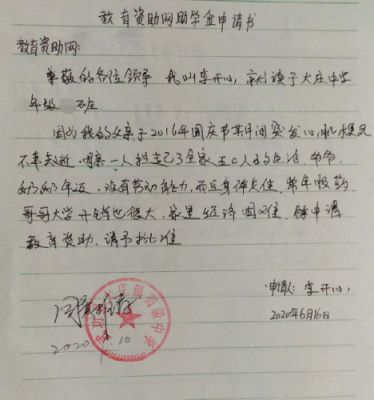 教育资助网助学金申请书
教育资助网:
尊敬的各位领导 我叫李开心, 就读于大庄中学
年级 班
因为我的父亲于2016年国庆节期间突发心肌梗死
不幸去逝, 母亲一人担起了全家五口人的生活, 爷爷,
奶奶年迈, 没有劳动能力, 而且身体欠佳, 常年吃药,
哥哥大学开销也很大, 家里经济困难, 特申请
教育资助, 请予批准
申请人: 李开心
2020年6月16日
同意推荐
2020 10
大庄镇初级中学